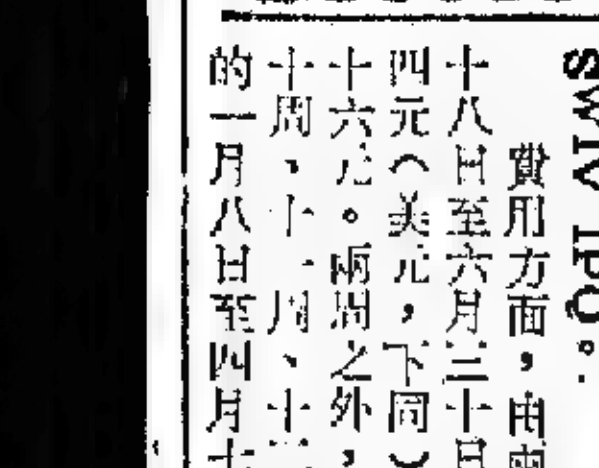 SW1V 1PQ。
費用方面,由兩
十八日至六月三十日
四元(美元,下同)
十六元。兩周之外,
十周、十一周、十二
的一月八日至四月十